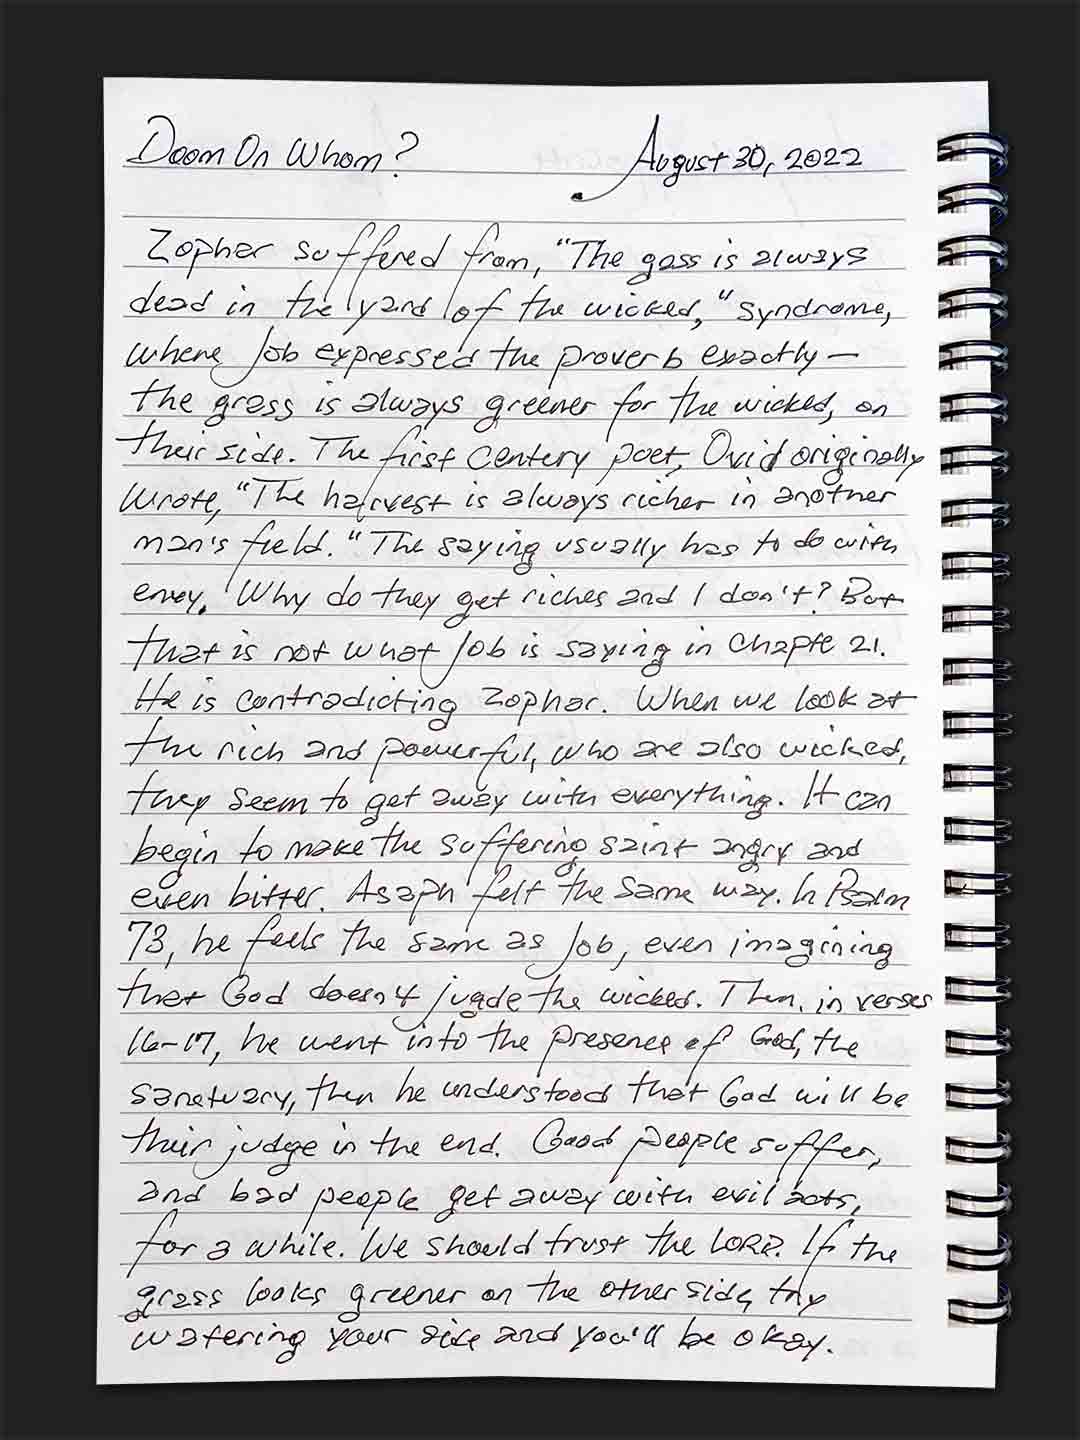 Doom On Whom? August 30, 2022
Zophar suffered from, "The gass is always
dead in the yard of the wicked," syndrome,
where Job expressed the proverb exactly —
the grass is always greener for the wicked, on
their side. The first century poet, Ovid originally
wrote, "The harvest is always richer in another
man's field." The saying usually has to do with
envey. Why do they get riches and I don't? But
that is not what Job is saying in Chapte 21.
He is contradicting Zophar. When we look at
the rich and powerful, who are also wicked,
they seem to get away with everything. It can
begin to make the suffering saint angry and
even bitter. Asaph felt the same way. In Psalm
73, he feels the same as Job, even imagining
that God doesn't jugde the wicked. Then, in verses
16-17, he went into the presence of God, the
sanctuary, then he understood that God will be
their judge in the end. Good people suffer,
and bad people get away with evil acts,
for a while. We should trust the LORD. If the
grass looks greener on the other side, try
watering your side and you'll be okay.